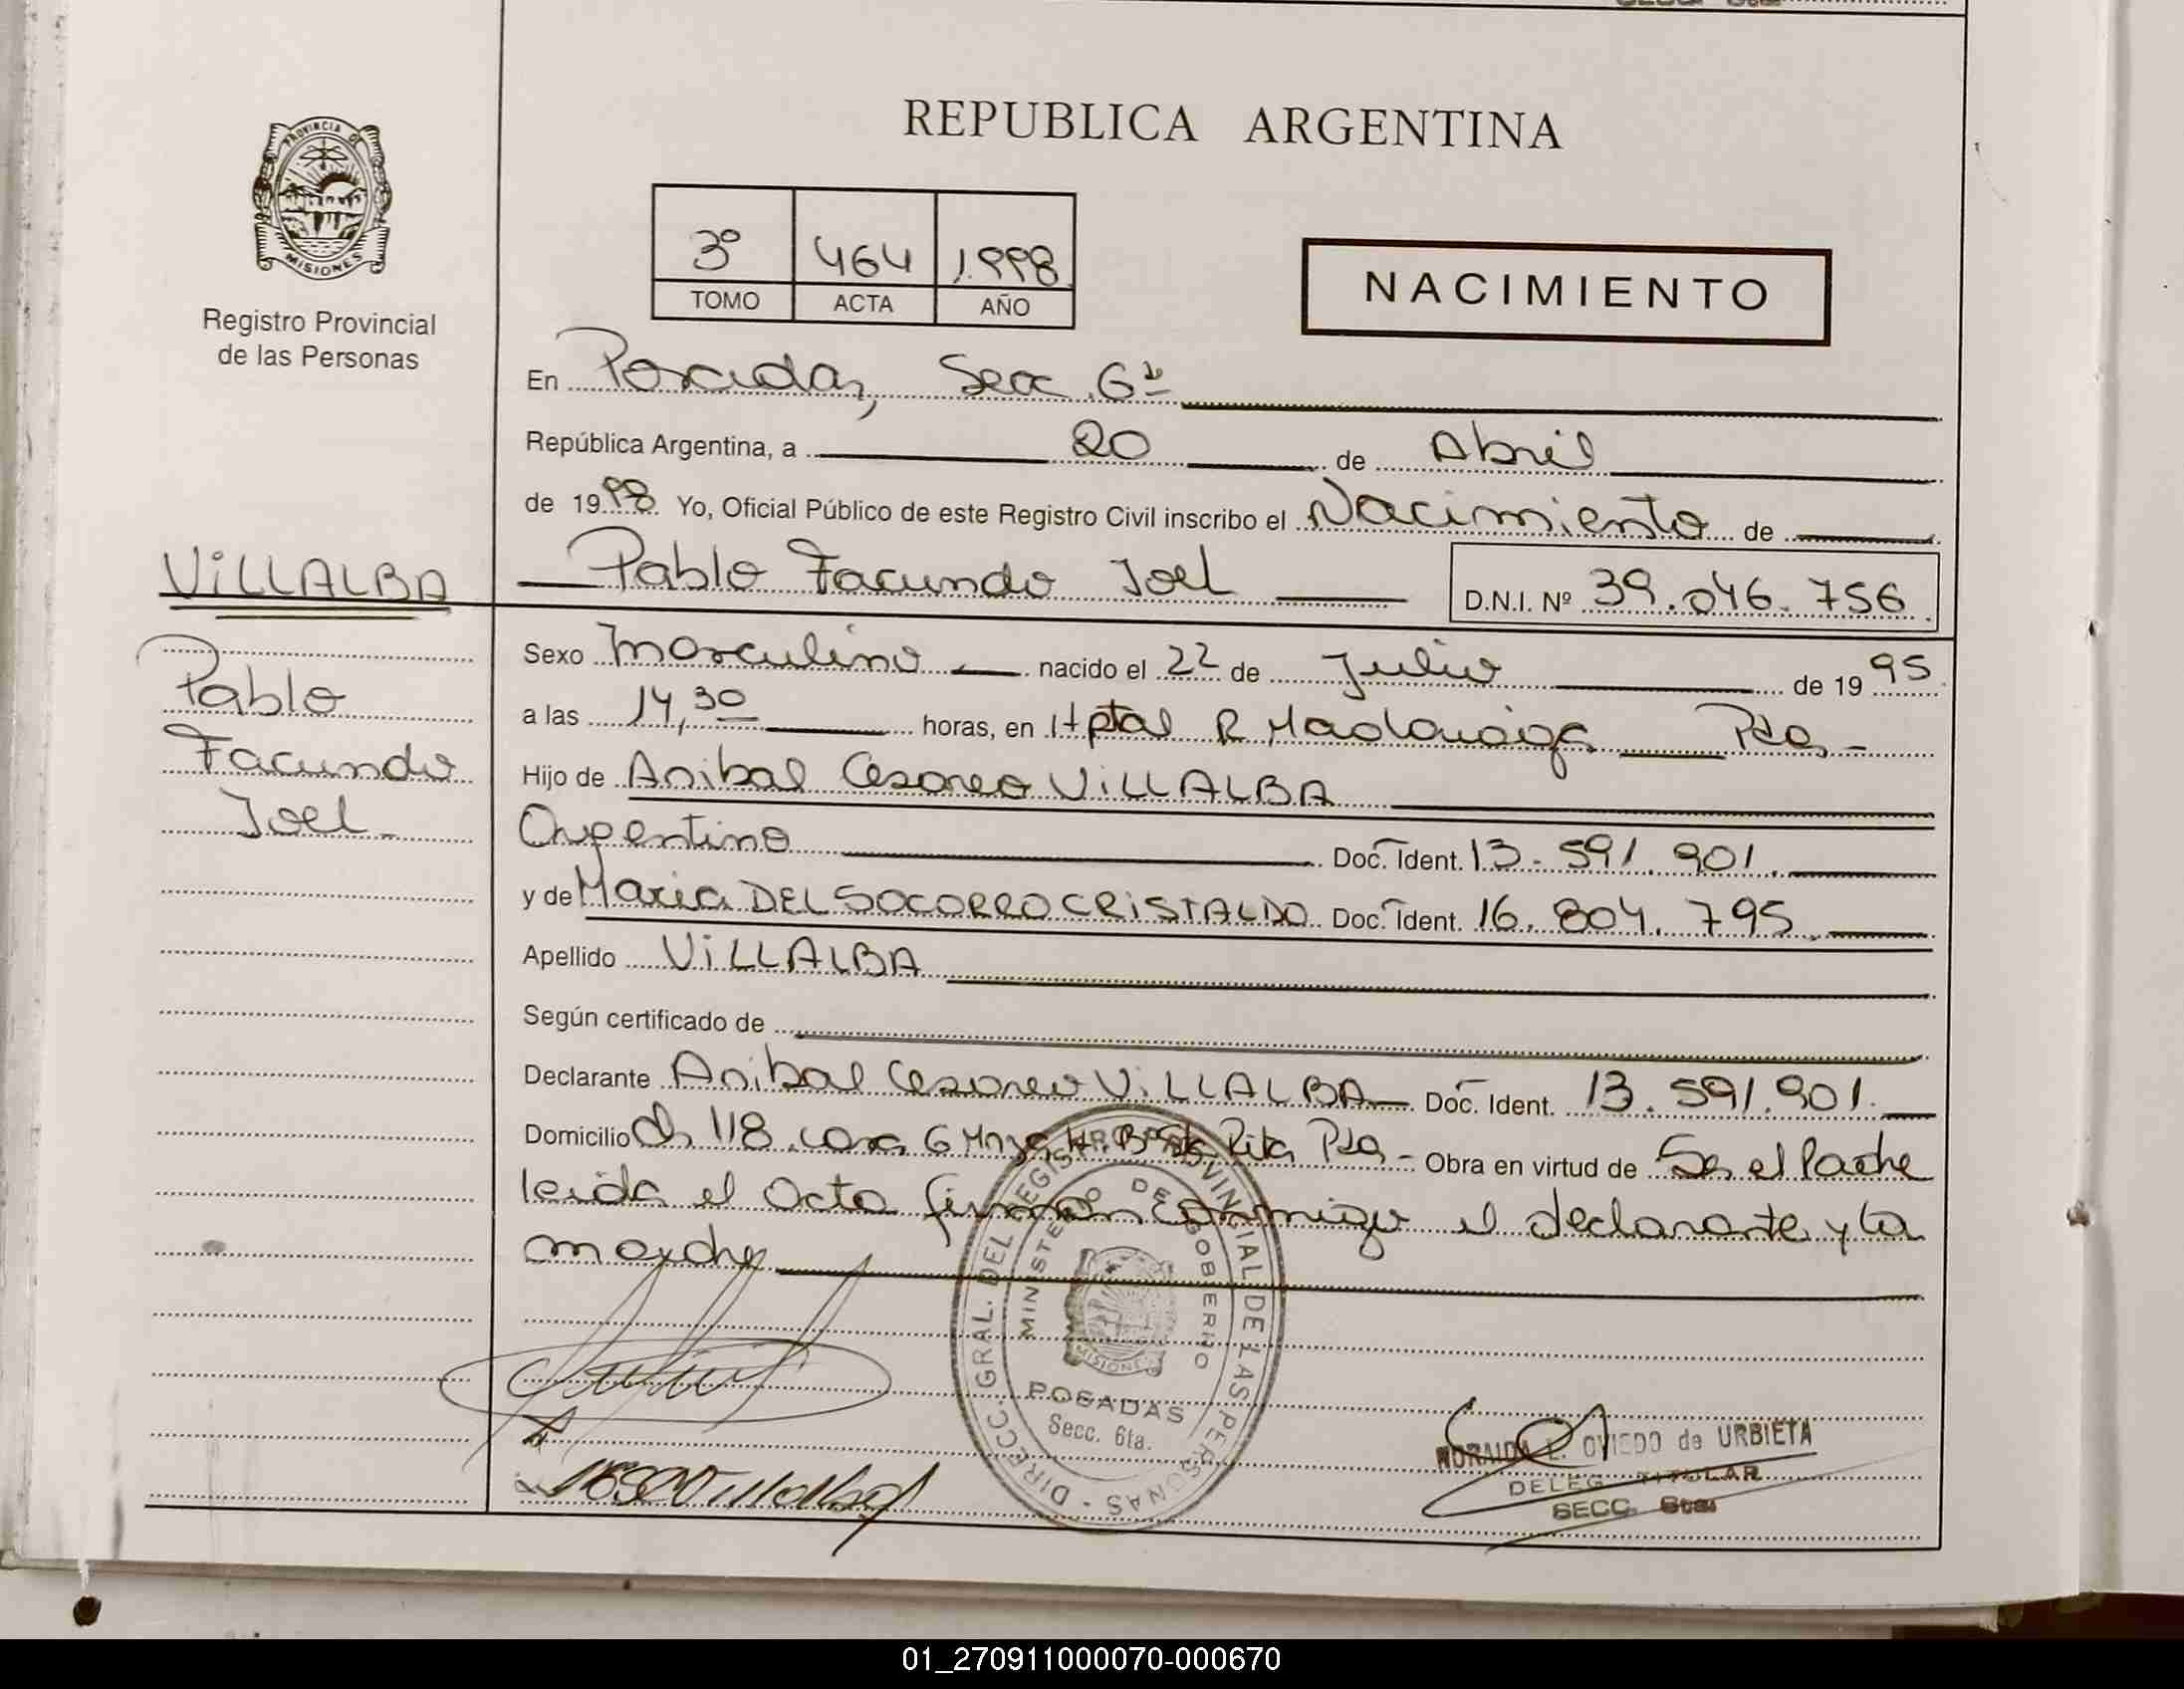 REPUBLICA ARGENTINA
PROVINCIA D
MISIONES
Registro Provincial
de las Personas
3º 464 1.998
TOMO ACTA AÑO
NACIMIENTO
En Posadas, Secc. 6ª
República Argentina, a 20 de Abril
de 1998 Yo, Oficial Público de este Registro Civil inscribo el Nacimiento de
VILLALBA
Pablo Facundo Joel D.N.I. Nº 39.046.756
Pablo
Facundo
Joel
Sexo Masculino nacido el 22 de Julio de 1995
a las 14,30 horas, en Hptal R Madariaga Pdas
Hijo de Anibal Cesareo VILLALBA
Argentino Doc. Ident. 13.591.901.
y de Maria DEL SOCORRO CRISTALDO Doc. Ident. 16.804.795
Apellido VILLALBA
Según certificado de
Declarante Anibal Cesareo VILLALBA Doc. Ident. 13.591.901.
Domicilio Ch 118 casa 6 Mnza H. B Sta Rita Pdas - Obra en virtud de Ser el Padre
leida el acta firman conmigo el declarante y la
madre
DIRECC. GRAL. DEL REGISTRO PROVINCIAL DE LAS PERSONAS
MINISTERIO DE GOBIERNO
MISIONES
POSADAS
Secc. 6ta.
NORAIDA L. OVIEDO de URBIETA
DELEG. TITULAR
SECC. 6ta.
01_270911000070-000670